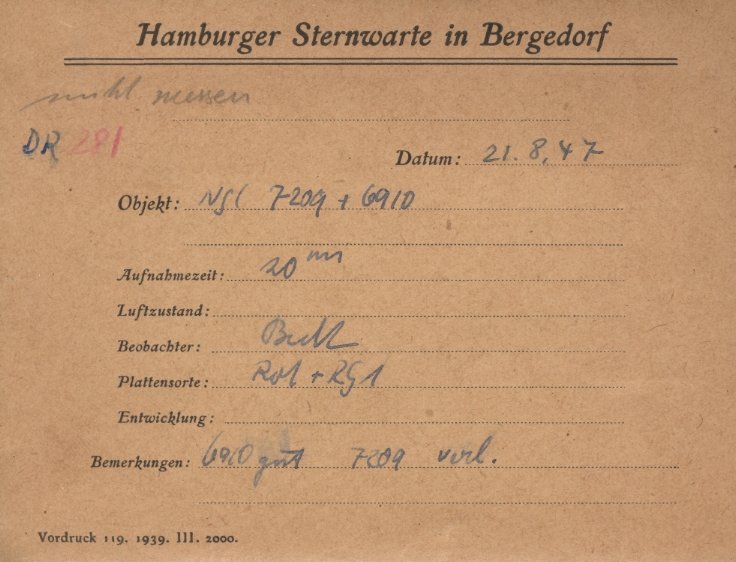 Hamburger Sternwarte in Bergedorf
nicht messen
DR 281
Datum: 21. 8. 47
Objekt: NGC 7209 + 6910
Aufnahmezeit: 20 m
Luftzustand:
Beobachter:
Plattensorte: Rot + RG1
Entwicklung:
Bemerkungen: 6910 gut 7209
Vordruck 119. 1939. III. 2000.